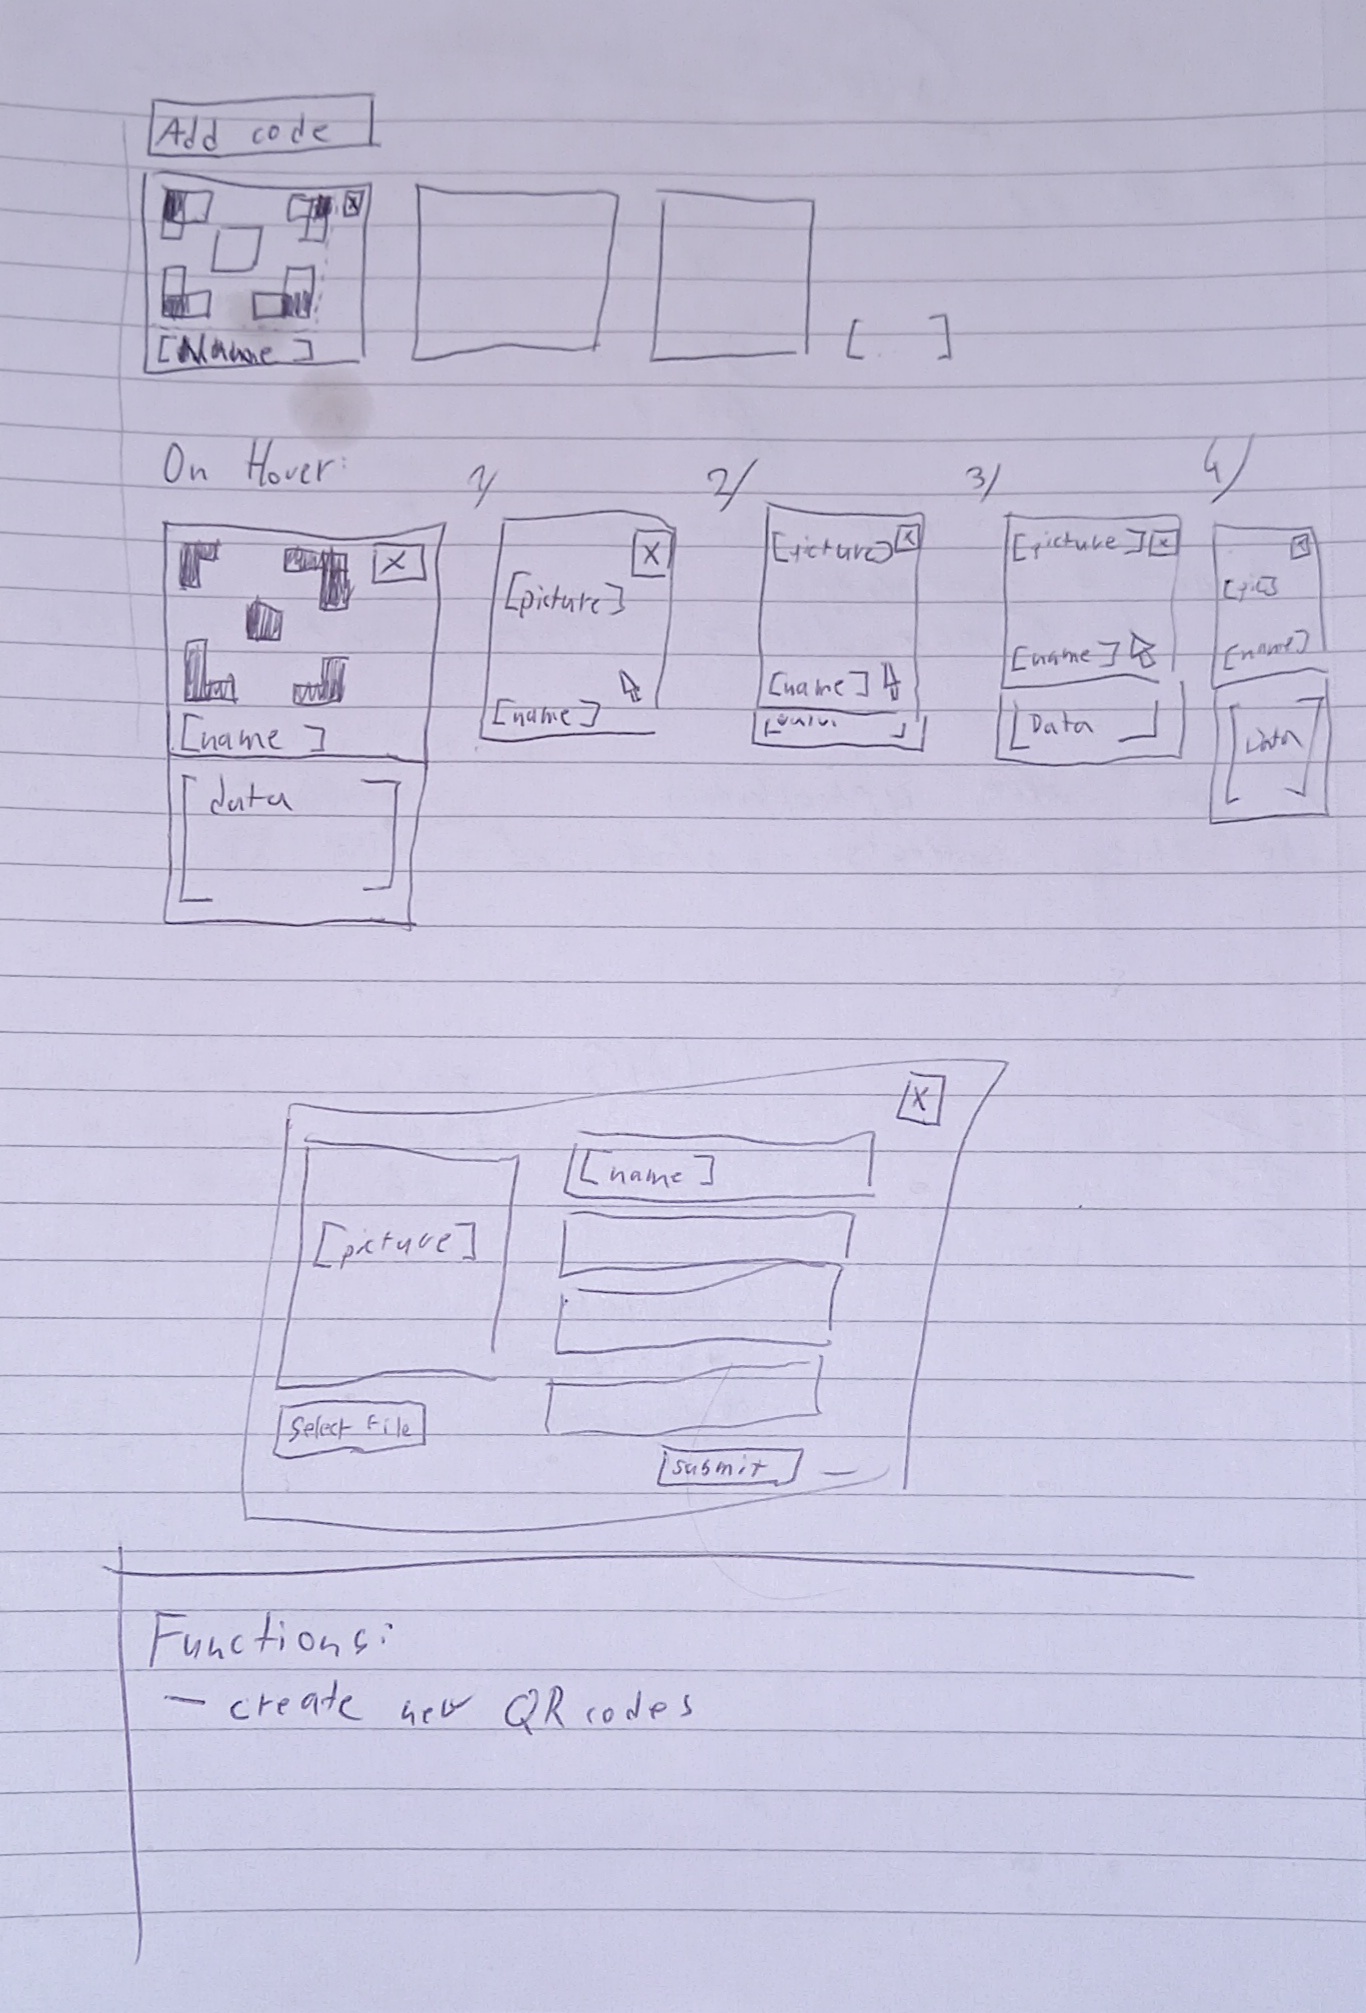 Add code
X
[Name]
[ ]
On Hover:
1/
2/
3/
4/
X
[name]
[data]
X
[picture]
[name]
[picture] X
[name]
[picture] X
[name]
[Data]
X
[pic]
[name]
[Data]
X
[picture]
[name]
Select File
submit
Functions:
— create new QR codes